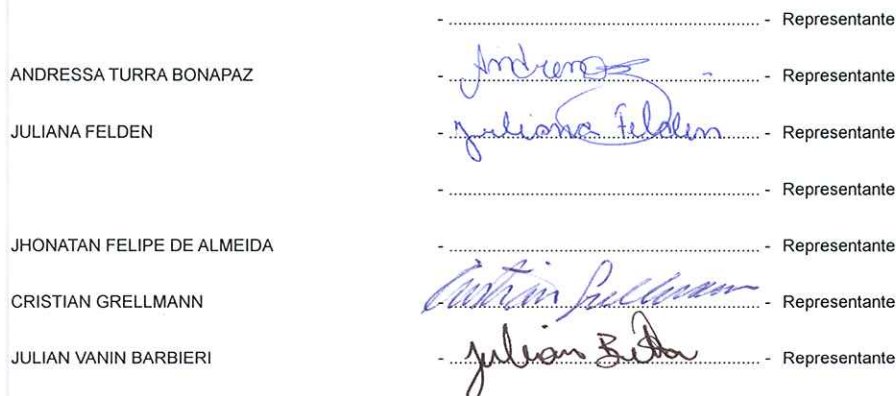 - ........................................................................ - Representante
ANDRESSA TURRA BONAPAZ - Andressa - Representante
JULIANA FELDEN - Juliana Felden - Representante
- ........................................................................ - Representante
JHONATAN FELIPE DE ALMEIDA - ........................................................................ - Representante
CRISTIAN GRELLMANN - Cristian Grellmann - Representante
JULIAN VANIN BARBIERI - Julian - Representante